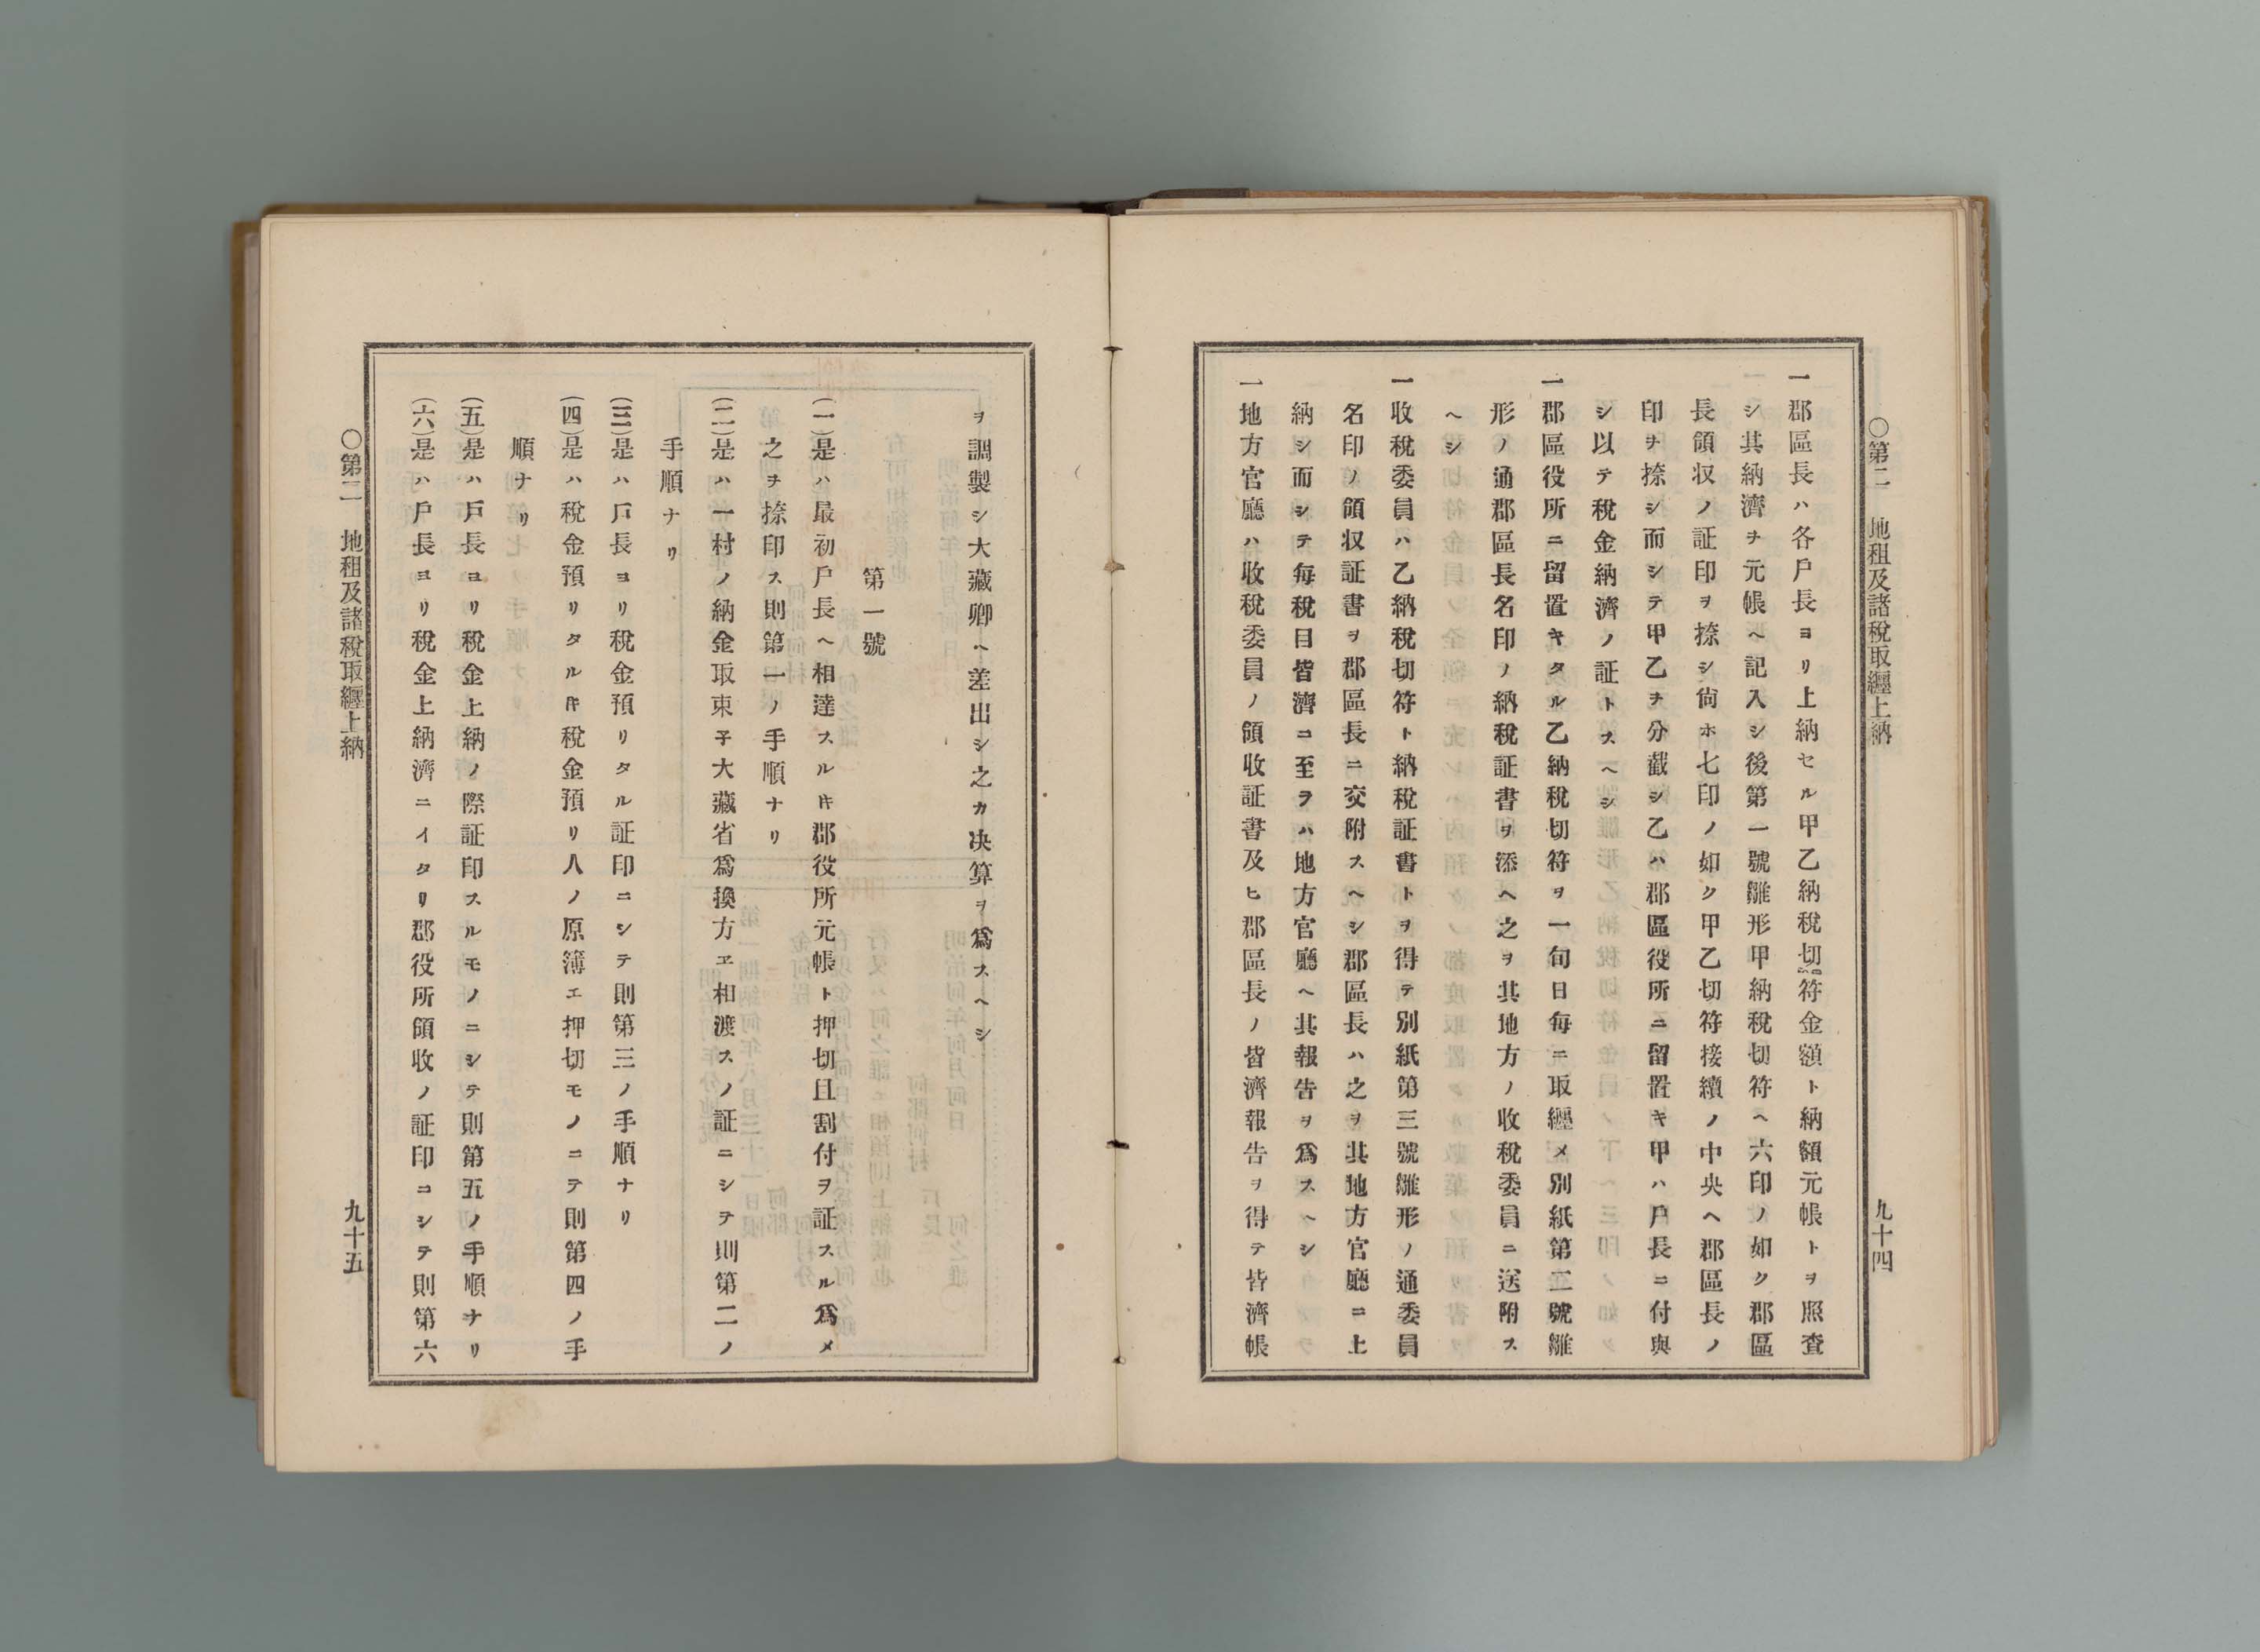 ○第二　地租及諸稅取纒上納
九十四
一郡區長ハ各戸長ヨリ上納セル甲乙納稅切符金額ト納額元帳トヲ照査
シ其納濟ヲ元帳ヘ記入シ後第一號雛形甲納稅切符ヘ六印ノ如ク郡區
長領収ノ証印ヲ捺シ尙ホ七印ノ如ク甲乙切符接續ノ中央ヘ郡區長ノ
印ヲ捺シ而シテ甲乙ヲ分截シ乙ハ郡區役所ニ留置キ甲ハ戸長ニ付與
シ以テ稅金納濟ノ証トスヘシ
一郡區役所ニ留置キタル乙納稅切符ヲ一旬日每ニ取纒メ別紙第二號雛
形ノ通郡區長名印ノ納稅証書ヲ添ヘ之ヲ其地方ノ收稅委員ニ送附ス
ヘシ
一收稅委員ハ乙納稅切符ト納稅証書トヲ得テ別紙第三號雛形ノ通委員
名印ノ領収証書ヲ郡區長ニ交附スヘシ郡區長ハ之ヲ其地方官廳ニ上
納シ而シテ每稅目皆濟ニ至ラハ地方官廳ヘ其報告ヲ爲スヘシ
一地方官廳ハ收稅委員ノ領收証書及ヒ郡區長ノ皆濟報告ヲ得テ皆濟帳
ヲ調製シ大藏卿ヘ差出シ之カ决算ヲ爲スヘシ
第一號
(一)是ハ最初戸長ヘ相達スルキ郡役所元帳ト押切且割付ヲ証スル爲メ
之ヲ捺印ス則第一ノ手順ナリ
(二)是ハ一村ノ納金取束子大藏省爲換方ヱ相渡スノ証ニシテ則第二ノ
手順ナリ
(三)是ハ戸長ヨリ稅金預リタル証印ニシテ則第三ノ手順ナリ
(四)是ハ稅金預リタルキ稅金預リ人ノ原簿エ押切モノニテ則第四ノ手
順ナリ
(五)是ハ戸長ヨリ稅金上納ノ際証印スルモノニシテ則第五ノ手順ナリ
(六)是ハ戸長ヨリ稅金上納濟ニイタリ郡役所領收ノ証印ニシテ則第六
○第二　地租及諸稅取纒上納
九十五